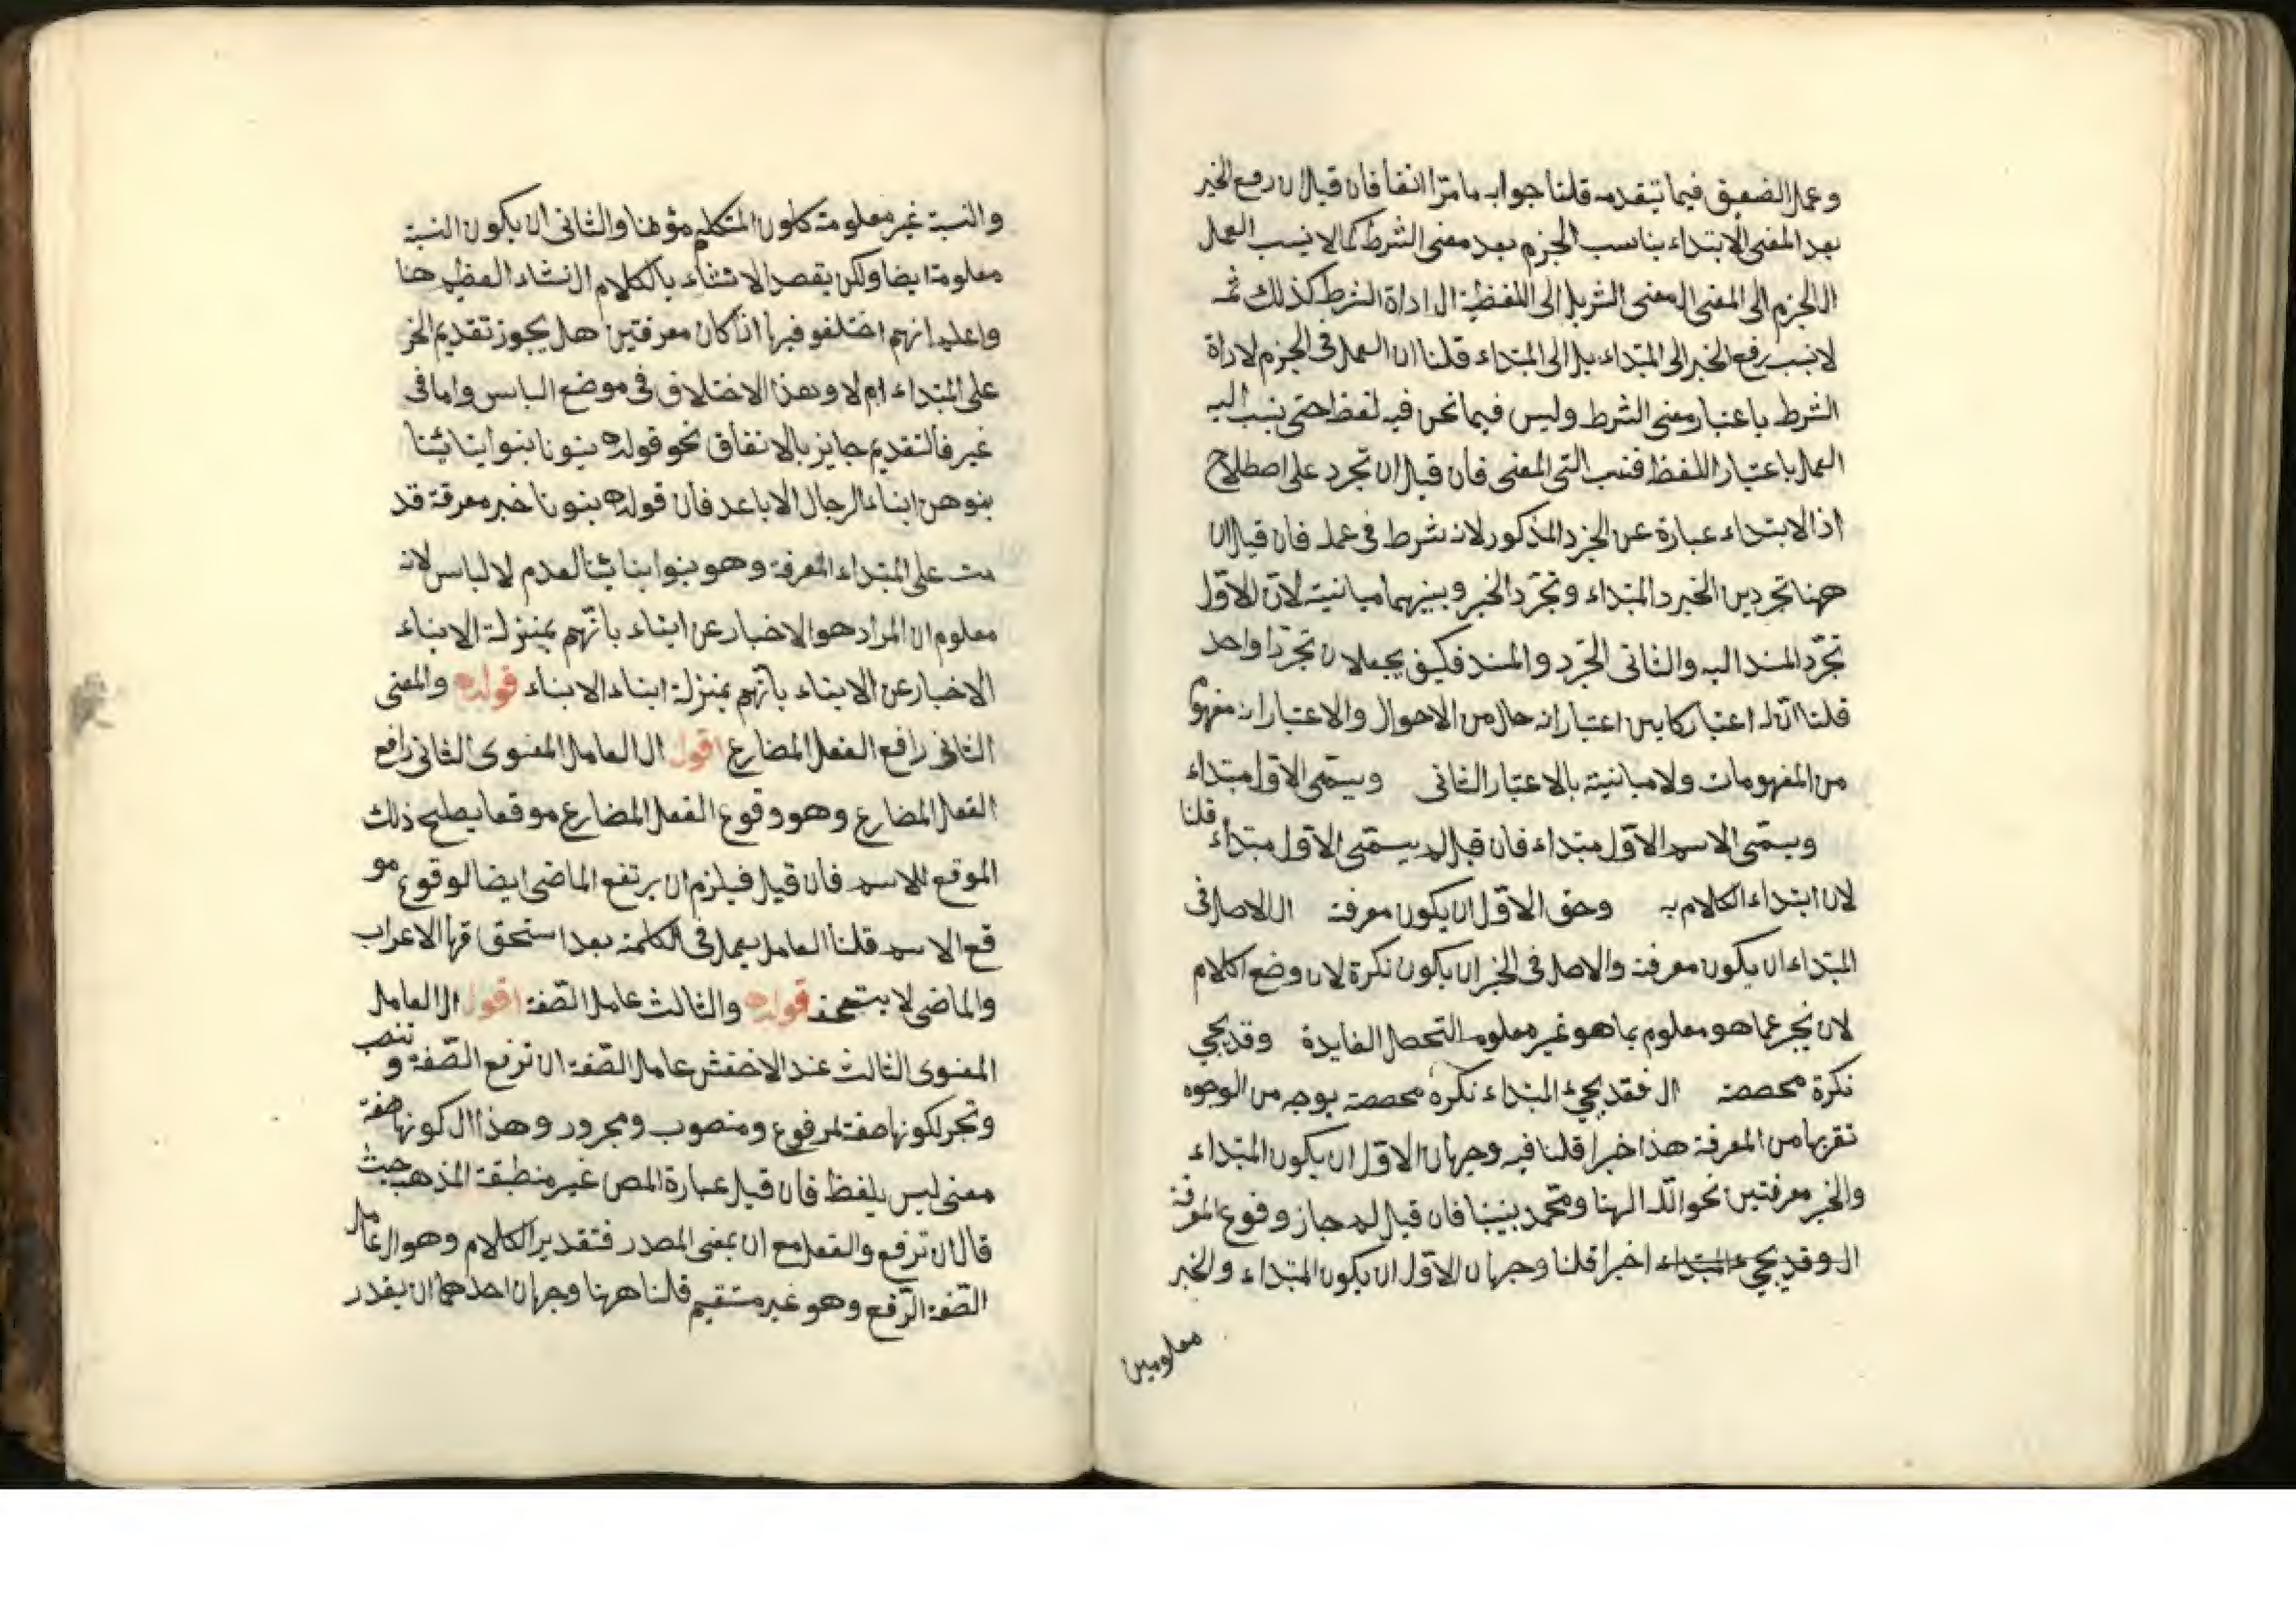 وعمل الضعيق فيما تيقدمه قلنا جوابه ما مرّ اانفا فان قيل ان رفع الخبر
بعد المفنى الابتداء يناسب الجزم بعد معنى الشرط كمالا ينسب العمل
ال الجزم الى المفنى ال معنى الشر بل الى اللفظية ال اداة الشرط كذلك ثمه
لا ينسب رفع الخبر الى المبتداء بل الى المبتداء قلنا ان العمل فى الجزم لاداة
الشرط باعتبار معنى الشرط وليس فيما نحن فيه لفظ حتى ينسب اليه
العمل باعتبار اللفظ فنسب التى المفنى فان قيل ان تجرد على اصطلاح
اذ الابتداء عبارة عن الجزد المذكور لانه شرط فى عمله فان قيل ان
ههنا تجردين الخبر د المبتداء وتجرّد الخبر وبينهما مباينية لانّ الاوّل
تجرّد المسند اليه والثانى التجرّد والمسند فكيف يجعلان تجرّدا واحد
قلنا انّ له اعتبار كاين اعتبار انه حال من الاحوال والاعتبار انه مفهوم
من المفهومات ولا مباينية بالاعتبار الثانى ويسمّى الاوّل مبتداء
ويسمّى الاسم الاوّل مبتداء فان قيل لم يسمّى الاوّل مبتداء قلنا
لان ابتداء الكلام به وحق الاوّل ان يكون معرفة ال الاصل فى
المبتداء ان يكون معرفة والاصل فى الخبر ان يكون نكرة لان وضع الكلام
لان يخبر عما هو معلوم بما هو غير معلوم التحصل الفايدة وقد يجي
نكرة مخصصة ال فقد يجيء المبتداء نكرة مخصصة بوجه من الوجوه
تقربها من المعرفة هذا خبرا قلنا فيه وجهان الاوّل ان يكون المبتداء
والخبر معرفتين نحو اللّه الهنا ومحمّد نبينا فان قيل لم جاز وقوع المعرفة
ال وقد يجيء المبتداء اخبرا قلنا وجهان الاوّل ان يكون المبتداء والخبر
معلومين
والنسبة غير معلومة كلون المتكلم مؤمنا والثانى ان يكون النسبة
معلومة ايضا ولكن يقصد الانشاء بالكلام ال نشاء العظيم هنا
واعلم انهم اختلفو فيها اذا كان معرفتين هل يجوز تقديم الخبر
على المبتداء ام لا وهذا الاختلاق فى موضع الباس واما فى
غير فالتقديم جايز بالاتفاق نحو قوله بنونا بنوا ابنا ئنا
بنوهن ابناء الرجال الاباعد فان قوله بنونا خبر معرفة قد
مت على المبتداء المعرفة وهو بنوا ابنا ئنا لعدم لالباس لانه
معلوم ان المراد هو الاخبار عن ابناء بانّهم بمنزلة الابناء
الاخبار عن الابناء بانّهم بمنزلة ابناء الابناء قوله والمفنى
الثانى رافع الفعل المضارع اقول ال العامل المفنوى الثانى رافع
الفعل المضارع وهو وقوع الفعل المضارع موقعا يصلح ذلك
الموقع للاسم فان قيل فيلزم ان يرتفع الماضى ايضا لوقوع مو
قع الاسم قلنا العامل يعمل فى الكلمة بعد استحقاقها الاعراب
والماضى لا يستحق قوله والثالث عامل الصّفة اقول ال العامل
المفنوى الثالث عند الاخفش عامل الصّفة ان ترفع الصّفة و تنصب
وتجر لكونها صفة لمرفوع ومنصوب ومجرور وهذا ال كونها صفة
معنى ليس بلفظ فان قيل عبارة المص غير منطبقة المذهب حيث
قال ان ترفع والفعل مع ان بمعنى المصدر فتقدير الكلام وهو ال عامل
الصّفة الرّفع وهو غير مستقيم قلنا ههنا وجهان احدهما ان يقدر